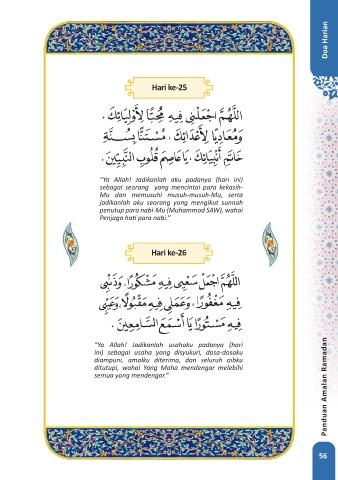 Doa Harian
Hari ke-25
اَللَّهُمَّ اجْعَلْنِي فِيهِ مُحِبًّا لِأَوْلِيَائِكَ ،
وَمُعَادِيًا لِأَعْدَائِكَ ، مُسْتَنًّا بِسُنَّةِ
خَاتَمِ أَنْبِيَائِكَ ، يَا عَاصِمَ قُلُوبِ النَّبِيِّينَ .
“Ya Allah! Jadikanlah aku padanya (hari ini)
sebagai seorang yang mencintai para kekasih-
Mu dan memusuhi musuh-musuh-Mu, serta
jadikanlah aku seorang yang mengikut sunnah
penutup para nabi-Mu (Muhammad SAW), wahai
Penjaga hati para nabi.”
Hari ke-26
اَللَّهُمَّ اجْعَلْ سَعْيِي فِيهِ مَشْكُورًا، وَذَنْبِي
فِيهِ مَغْفُورًا ، وَعَمَلِي فِيهِ مَقْبُولًا، وَعَيْبِي
فِيهِ مَسْتُورًا يَا أَسْمَعَ السَّامِعِينَ .
“Ya Allah! Jadikanlah usahaku padanya (hari
ini) sebagai usaha yang disyukuri, dosa-dosaku
diampuni, amalku diterima, dan seluruh aibku
ditutupi, wahai Yang Maha mendengar melebihi
semua yang mendengar.”
Panduan Amalan Ramadan
56